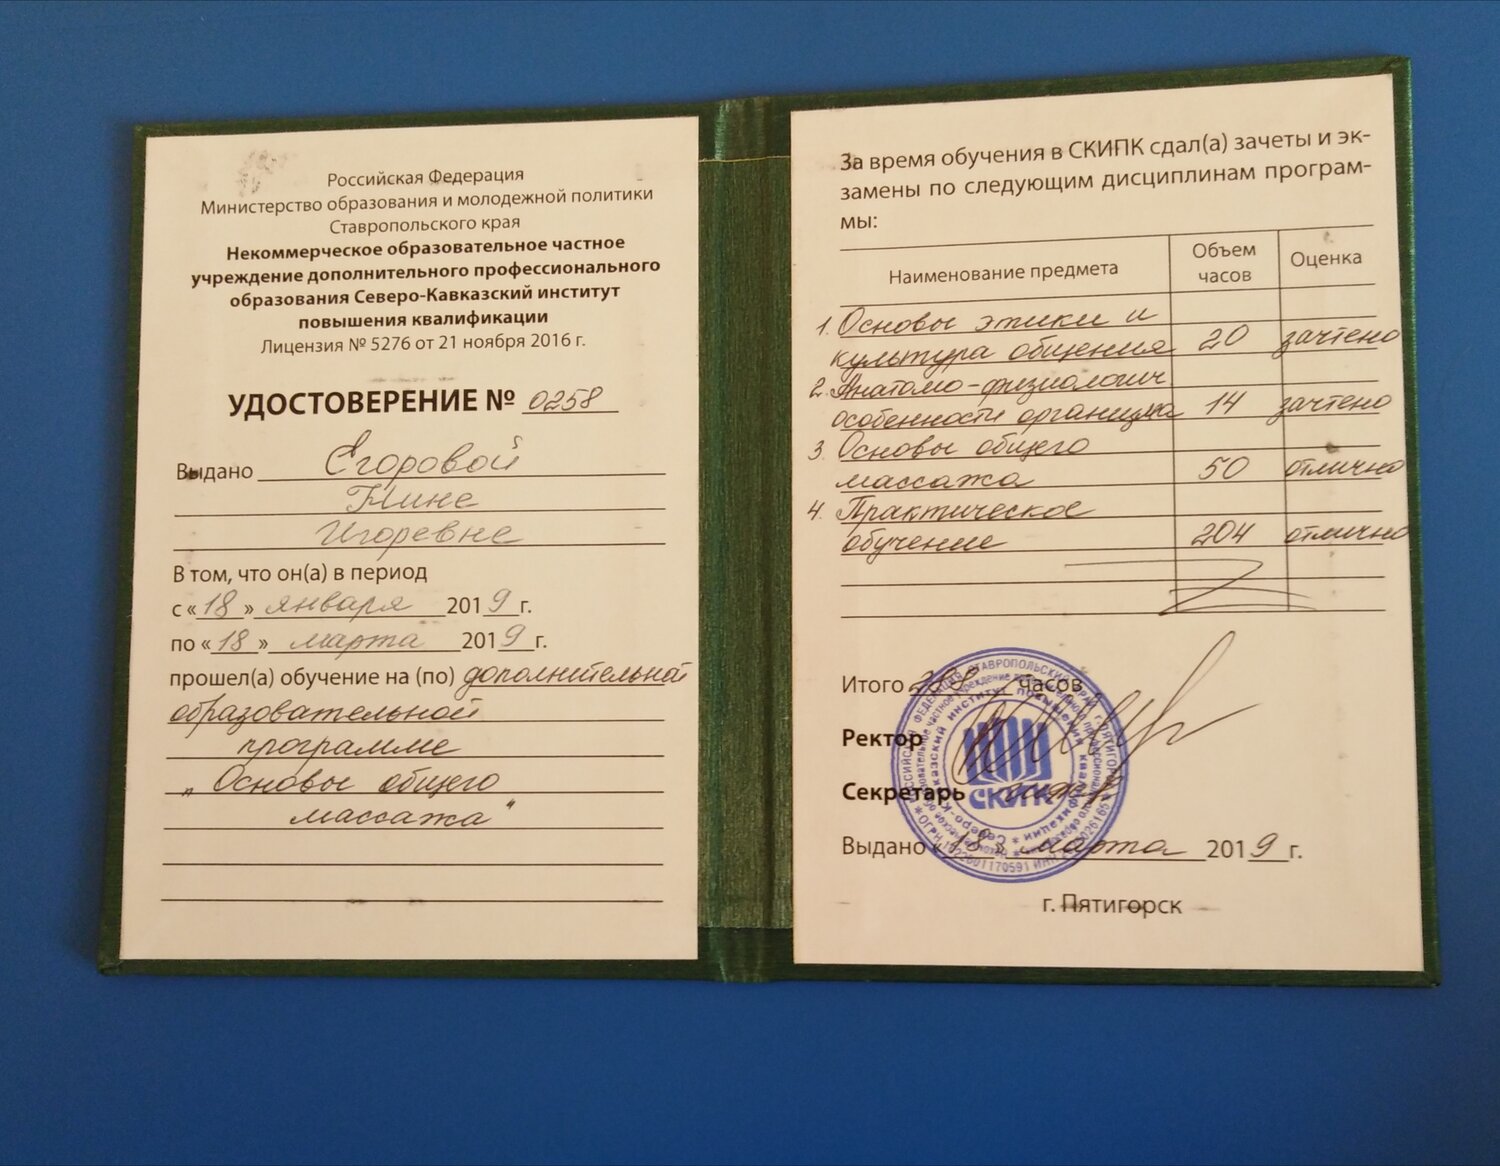 Российская Федерация
Министерство образования и молодежной политики
Ставропольского края
Некоммерческое образовательное частное
учреждение дополнительного профессионального
образования Северо-Кавказский институт
повышения квалификации
Лицензия № 5276 от 21 ноября 2016 г.
УДОСТОВЕРЕНИЕ № 0258
Выдано Егоровой
Нине
Игоревне
В том, что он(а) в период
с «18» января 2019 г.
по «18» марта 2019 г.
прошел(а) обучение на (по) дополнительной
образовательной
программе
„Основы общего
массажа"
За время обучения в СКИПК сдал(а) зачеты и эк-
замены по следующим дисциплинам програм-
мы:
Наименование предмета Объем часов Оценка
1. Основы этики и
культура общения 20 зачтено
2. Анатомо-физиологич
особенности организма 14 зачтено
3. Основы общего
массажа 50 отлично
4. Практическое
обучение 204 отлично
Итого часов
Ректор
Секретарь
СКИПК
Выдано «18» марта 2019 г.
г. Пятигорск